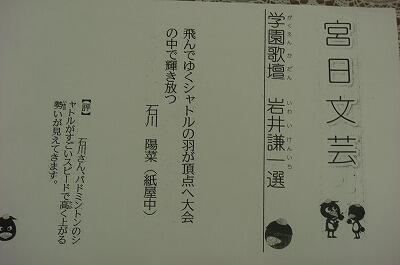 宮日文芸
学園歌壇 岩井謙一選
がくえんかだん いわいけんいち
飛んでゆくシャトルの羽が頂点へ大会
の中で輝き放つ
石川 陽菜(紙屋中)
【評】 石川さん、バドミントンのシ
ャトルがすごいスピードで高く上がる
勢いが見えてきます。